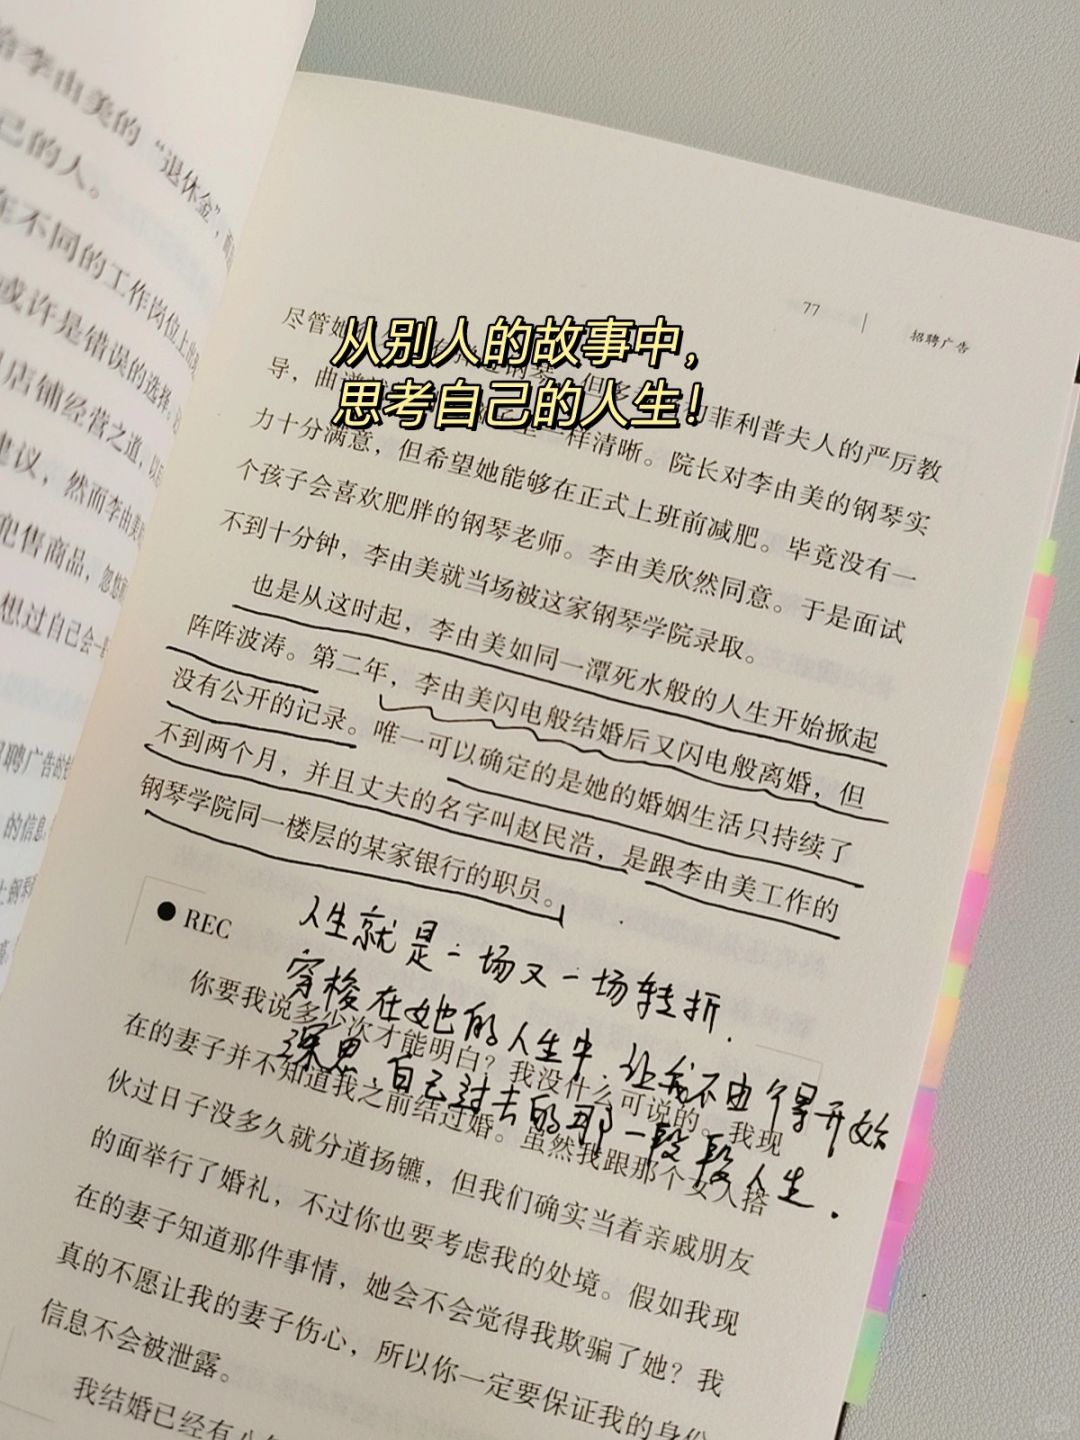 李由美的“退休金”，
己的人。
在不同的工作岗位上出现
或许是错误的选择。
店铺经营之道，以
建议，然而李由美
售商品，
想过自己会一
聘广告的
的信息
77 招聘广告
从别人的故事中，
思考自己的人生！
尽管她 钢琴，但多 菲利普夫人的严厉教
导，曲谱 一样清晰。院长对李由美的钢琴实
力十分满意，但希望她能够在正式上班前减肥。毕竟没有一
个孩子会喜欢肥胖的钢琴老师。李由美欣然同意。于是面试
不到十分钟，李由美就当场被这家钢琴学院录取。
也是从这时起，李由美如同一潭死水般的人生开始掀起
阵阵波涛。第二年，李由美闪电般结婚后又闪电般离婚，但
没有公开的记录。唯一可以确定的是她的婚姻生活只持续了
不到两个月，并且丈夫的名字叫赵民浩，是跟李由美工作的
钢琴学院同一楼层的某家银行的职员。
● REC
人生就是一场又一场转折.
穿梭在她的人生中，让我不由得开始
深思自己过去的那一段段人生.
你要我说多少次才能明白？我没什么可说的。我现
在的妻子并不知道我之前结过婚。虽然我跟那个女人搭
伙过日子没多久就分道扬镳，但我们确实当着亲戚朋友
的面举行了婚礼，不过你也要考虑我的处境。假如我现
在的妻子知道那件事情，她会不会觉得我欺骗了她？我
真的不愿让我的妻子伤心，所以你一定要保证我的身份
信息不会被泄露。
我结婚已经有八